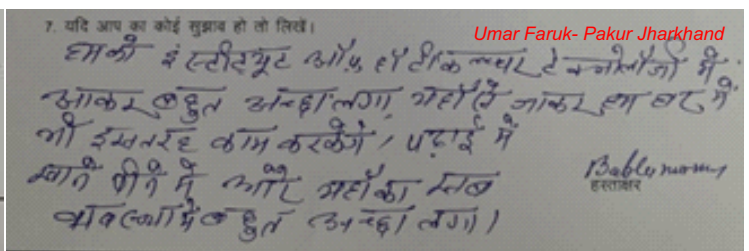 7. यदि आप का कोई सुझाव हो तो लिखें।
Umar Faruk- Pakur Jharkhand
हमको इंस्टीट्यूट ऑफ हॉर्टीकल्चर टेक्नोलॉजी में
आकर बहुत अच्छा लगा, यहाँ से जाकर हम घर में
भी इसतरह काम करेंगे, पढ़ाई में
खाने पीने में और यहाँ का सब
हस्ताक्षर
व्यवस्था में बहुत अच्छा लगा।